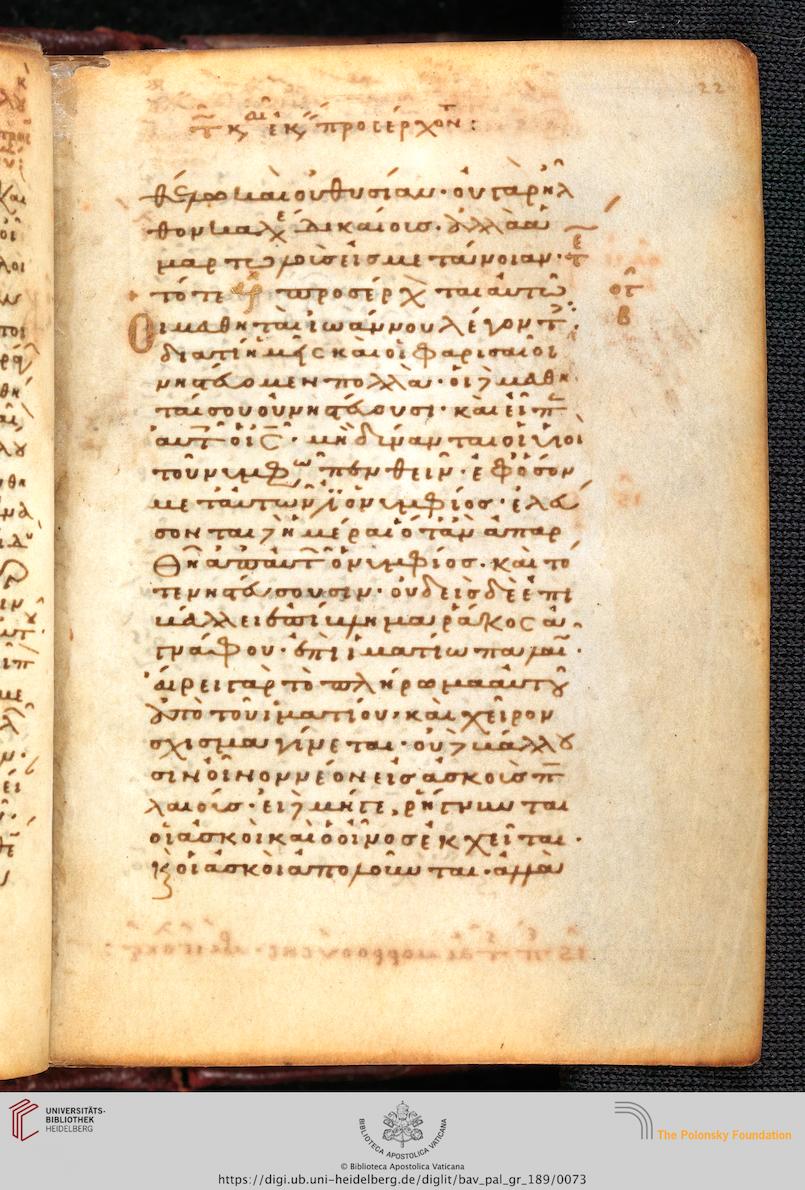 22
τῷ καιρῷ ἐκ προσέρχοντ :
θέλω καὶ οὐ θυσίαν · οὐ γὰρ ἦλ
θον καλέ δικαίους · ἀλλὰ ἁ
μαρτωλοὺς εἰς μετάνοιαν · τε
τότε προσέρχ ται αὐτῶ
Οἱ μαθηταὶ ἰωάννου λέγοντ ·
διατί ἡμεῖς καὶ οἱ φαρισαῖοι
νηστεύομεν πολλά · οἱ δὲ μαθη
ταί σου οὐ νηστεύουσι · καὶ εἶπ
αὐτ ὁ ις · μὴ δύνανται οἱ υἱοὶ
τοῦ νυμφῶ πενθεῖν · ἐφόσον
μετ' αὐτῶν ὁ νυμφίος · ἐλεύ
σονται δὲ ἡμέραι ὅταν ἀπαρ
θῆ ἀπ' αὐτ ὁ νυμφίος · καὶ τό
τε νηστεύσουσιν · οὐδεὶς δὲ ἐπι
βάλλει ἐπίβλημα ῥάκος ἀ
γνάφου · ἐπὶ ἱματίω παλαι ·
αἴρει γὰρ τὸ πλήρωμα αὐτοῦ
ἀπὸ τοῦ ἱματίου · καὶ χεῖρον
σχίσμα γίνεται · οὐ δὲ βάλλου
σιν οἶνον νέον εἰς ἀσκοὺς π
λαιούς · εἰ δὲ μήγε, ῥήγνυνται
οἱ ἀσκοὶ καὶ ὁ οἶνος ἐκχεῖται ·
καὶ οἱ ἀσκοὶ ἀπολοῦνται · ἀλλὰ
UNIVERSITÄTS-
BIBLIOTHEK
HEIDELBERG
BIBLIOTECA APOSTOLICA VATICANA
The Polonsky Foundation
© Biblioteca Apostolica Vaticana
https://digi.ub.uni-heidelberg.de/diglit/bav_pal_gr_189/0073